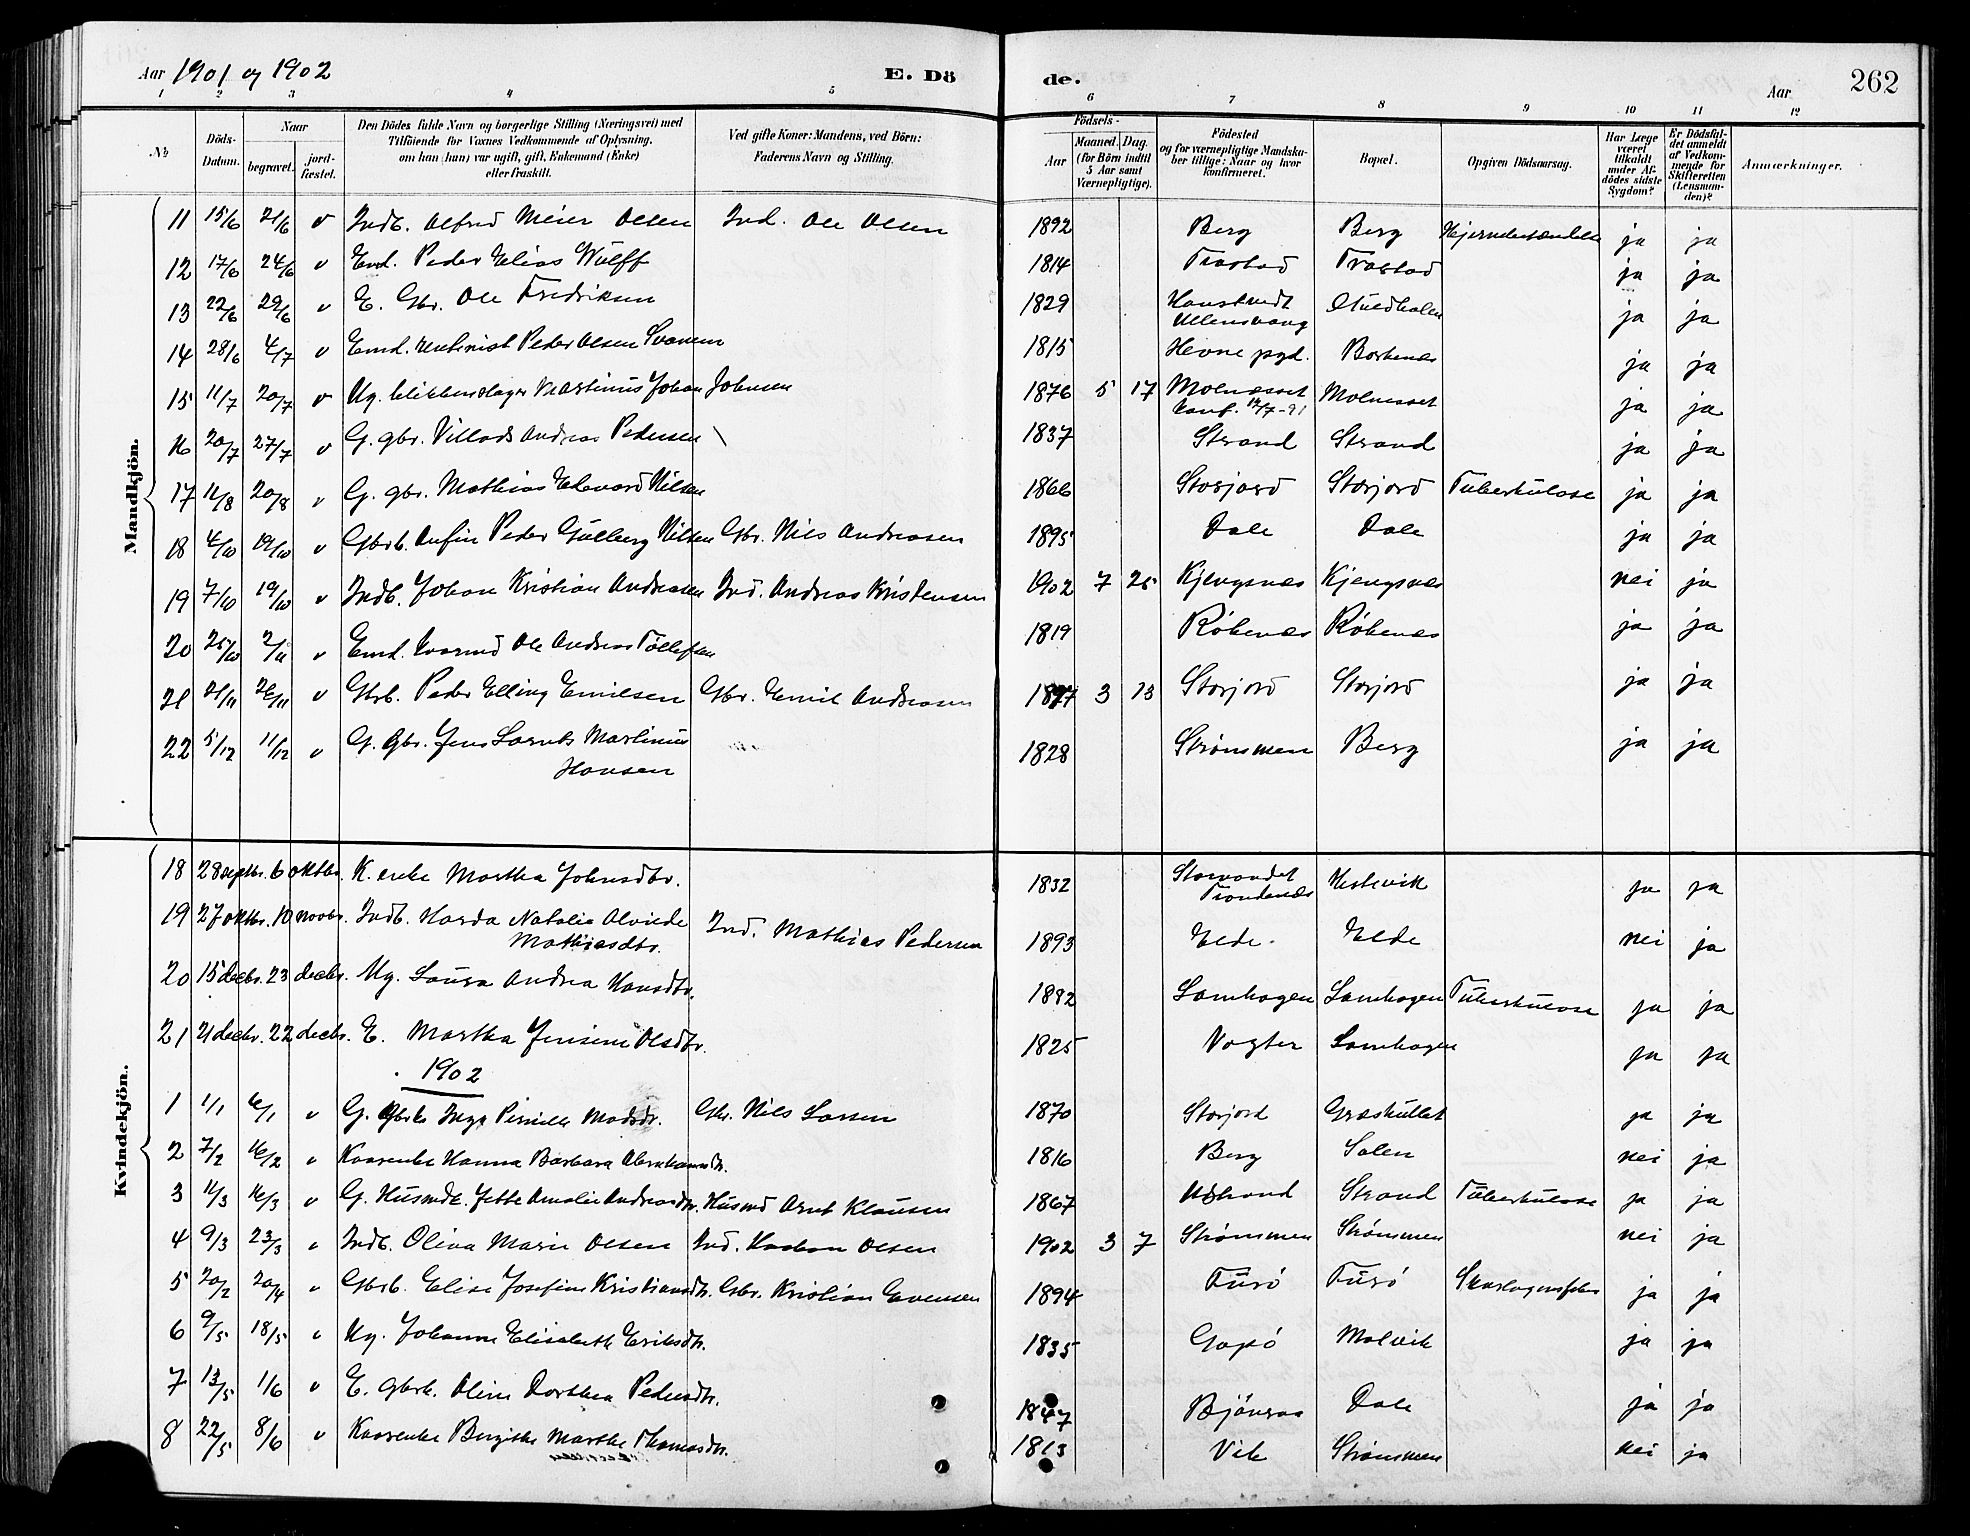 Aar 1901 og 1902 E. Dö de. Aar 262
1 2 3 4 5 6 7 8 9 10 11 12
No
Döds-Datum.
Naar begravet. jordfæstet.
Den Dödes fulde Navn og borgerlige Stilling (Næringsvei) med
Tilföiende for Voxnes Vedkommende af Oplysning,
om han (hun) var ugift, gift, Enkemand (Enke)
eller fraskilt.
Ved gifte Koner: Mandens, ved Börn:
Faderens Navn og Stilling.
Födsels-
Aar Maaned. Dag.
(for Börn indtil
5 Aar samt
Værnepligtige).
Födested
og for værnepligtige Mandskaber tillige: Naar og hvor
konfirmeret.
Bopæl.
Opgiven Dödsaarsag.
Har Læge
været
tilkaldt
under Afdödes sidste
Sygdom?
Er Dödsfaldet anmeldt
af Vedkommende for
Skifteretten
(Lensmanden)?
Anmærkninger.
Mandkjön.
11 15/6 21/6 v Indb. Alfred Meier Olsen Ind. Ole Olsen 1892 Berg Berg Hjernebetændelse ja ja
12 17/6 24/6 v Emd. Peder Elias Wulff 1814 Trastad Trastad ja ja
13 22/6 29/6 v E. Gbr. Ole Fredriksen 1829 Ullensvang ja ja
14 28/6 4/7 v Emd. Peder Olsen Svanem 1815 Hevne pgd. Borkenæs ja ja
15 11/7 20/7 v Ug. blikkenslager Martinus Johan Johnsen 1876 5 17 Molnesset konf. 12/7-91 Molnesset ja ja
16 20/7 27/7 v G. gbr. Villads Andreas Pedersen 1837 Strand Strand ja ja
17 11/8 20/8 v G. gbr. Mathias Edevard Nilsen 1866 Storjord Storjord Tuberkulose ja ja
18 4/10 19/10 v Gbrb. Anfin Peder Gulberg Nilsen Gbr. Nils Andreasen 1895 Dale Dale ja ja
19 7/10 19/10 v Indb. Johan Kristian Andreasen Ind. Andreas Kristensen 1902 7 25 Kjengsnæs Kjengsnæs nei ja
20 25/10 2/11 v Emd. Ole Andreas Tollefsen 1819 Røkenæs Røkenæs ja ja
21 21/11 26/11 v Gbrb. Peder Elling Emilsen Gbr. Emil Andreasen 1897 3 13 Storjord Storjord ja ja
22 5/12 11/12 v G. Gbr. Jens Lornts Martinus
Hansen 1828 Strømmen Berg ja ja
Kvindekjön.
18 28 septbr. 6 oktbr. K. enke Martha Johnsdtr. 1832 Storvandet Trondenæs Hestevik ja ja
19 27 oktbr. 10 novbr. Indb. Harda Natalie Alvilde
Mathiasdtr. Ind. Mathias Pedersen 1893 Elde Elde nei ja
20 15 decbr. 23 decbr. Ug. Laura Andrea Hansdtr. 1882 Lamhagen Lamhagen Tuberkulose ja ja
21 21 decbr. 22 decbr. E. Martha Jensine Olsdtr. 1825 Lamhagen ja ja
1902
1 1/1 6/1 v G. Gbrk Inga Pernille Madsdr. Gbr. Nils Larsen 1870 Storjord Græskullet ja ja
2 7/2 16/2 v Kaarenke Hanna Barbara Abrahamsdtr. 1816 Berg Salen nei ja
3 11/3 16/3 v G. Husmdk. Jette Amalie Andreasdtr. Husmd Arnt Klausen 1867 Strand Tuberkulose ja ja
4 9/3 23/3 v Indb. Oliva Marie Olsen Ind. Olsen 1902 3 7 Strømmen Strømmen nei ja
5 20/2 20/4 v Gbrb. Elise Josefine Kristiansdtr. Gbr. Kristian Evensen 1894 Fusø Fusø Skarlagensfeber ja ja
6 9/5 18/5 v Ug. Johanne Elisabeth Eriksdtr. 1835 Gapø Molvik ja ja
7 13/5 1/6 v E. gbrk. Oline Dorthea Pedersdtr. 1847 Dale ja ja
8 22/5 8/6 v Kaarenke Bergithe Marthe Thomasdtr. 1813 Vik Strømmen nei ja